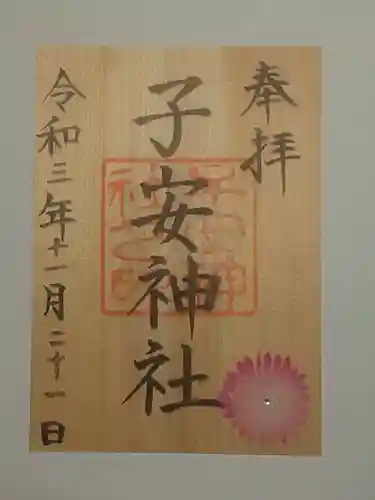 奉拝
子安神社
令和三年十一月二十一日